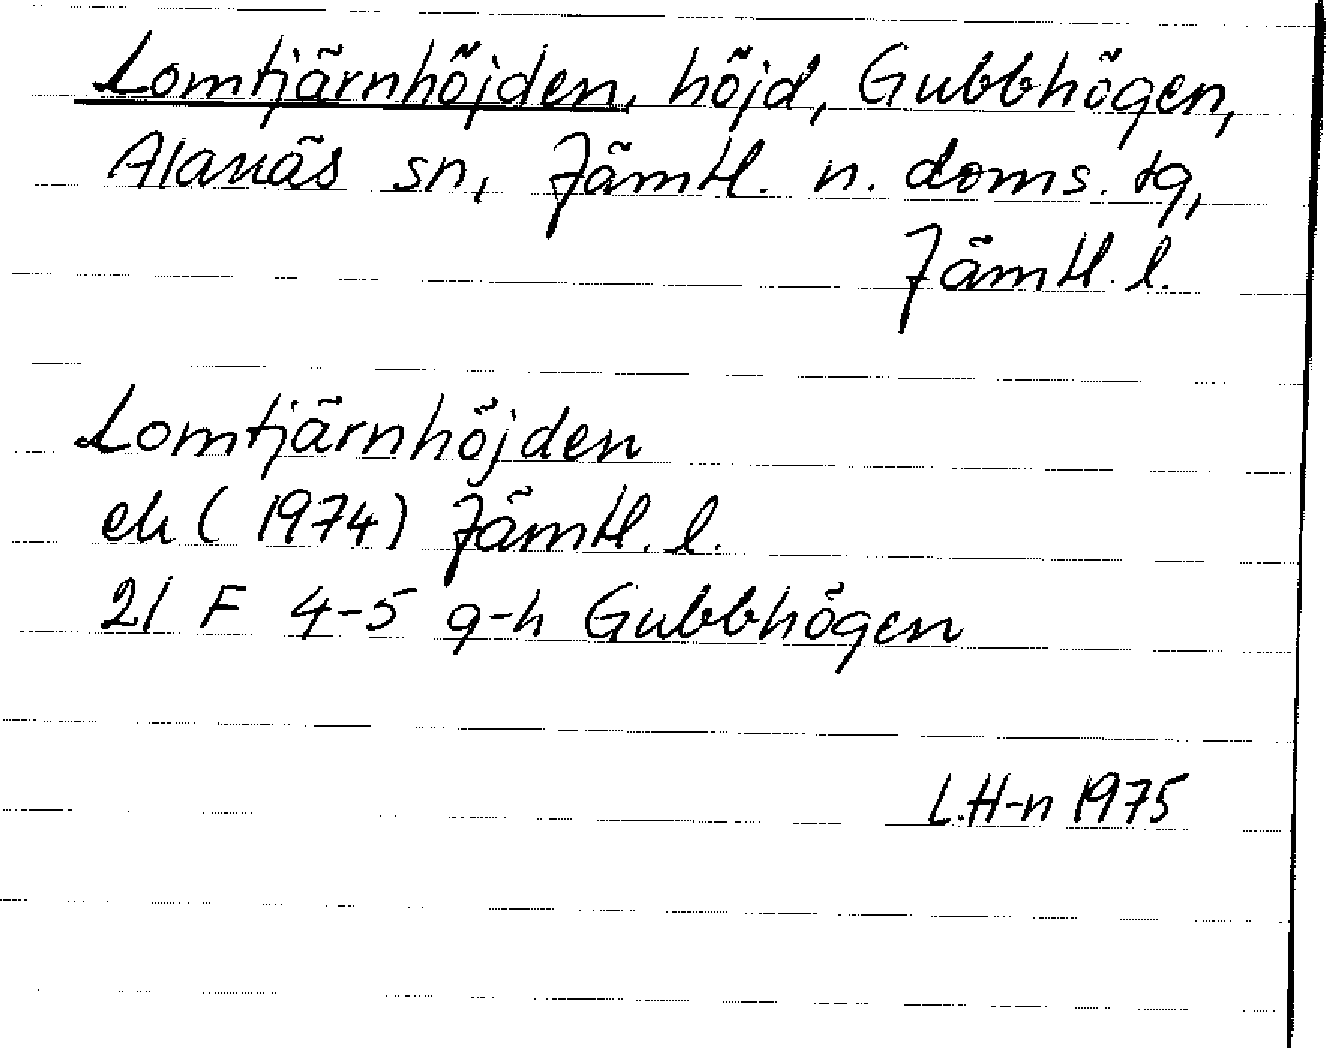 Lomtjärnhöjden, höjd, Gubbhögen,
Alanäs sn, Jämtl. n. doms. tg,
Jämtl. l.
Lomtjärnhöjden
ek (1974) Jämtl. l.
21 F 4-5 g-h Gubbhögen
L.H-n 1975